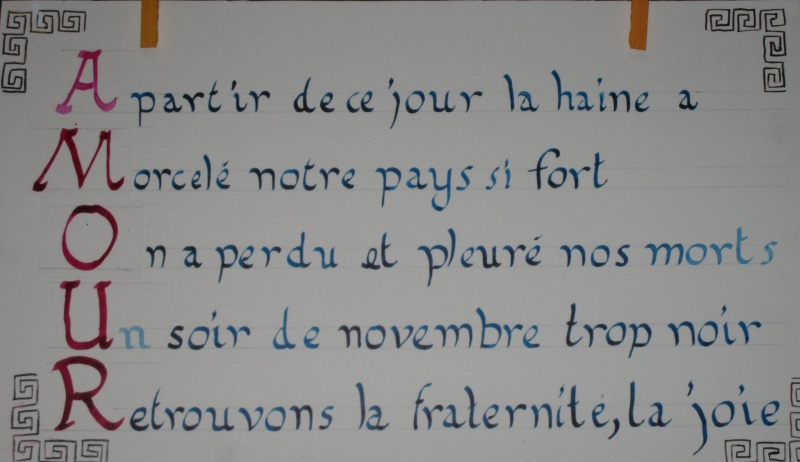 A partir de ce jour la haine a
Morcelé notre pays si fort
On a perdu et pleuré nos morts
Un soir de novembre trop noir
Retrouvons la fraternité, la joie